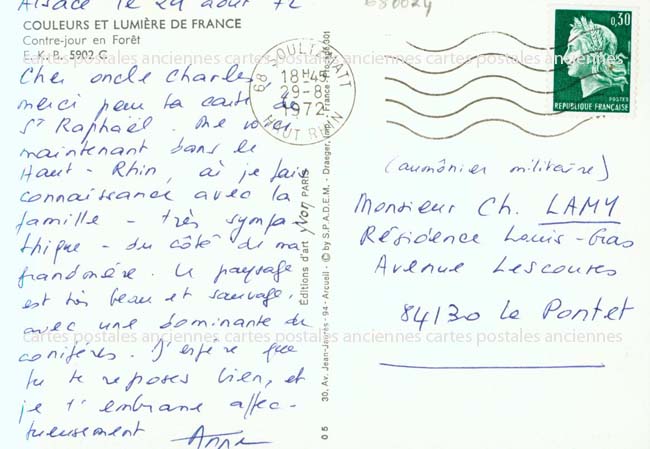 Alsace le 29 août 72
COULEURS ET LUMIÈRE DE FRANCE
Contre-jour en Forêt
E. K. B. 5902 C
Cher oncle Charles,
merci pour ta carte de
St Raphaël. Me voici
maintenant dans le
Haut-Rhin, où je fais
connaissance avec la
famille - très sympa-
thique - du côté de ma
grandmère. Le paysage
est très beau et sauvage,
avec une dominante de
conifères. J'espère que
tu te reposes bien, et
je t'embrasse affec-
tueusement
Anne
68 SOULTZMATT
18H45
29-8
1972
HAUT RHIN
Éditions d'art yvon PARIS
30, Av. Jean-Jaurès - 94 - Arcueil - © by S.P.A.D.E.M. - Draeger, Imp. France
05
680024
0,30
POSTES
RÉPUBLIQUE FRANÇAISE
(aumônier militaire)
Monsieur Ch. LAMY
Résidence Louis-Gras
Avenue Lescoures
84130 Le Pontet
cartes postales anciennes cartes postales anciennes cartes postales anciennes
cartes postales anciennes cartes postales anciennes cartes postales anciennes
cartes postales anciennes cartes postales anciennes cartes postales anciennes